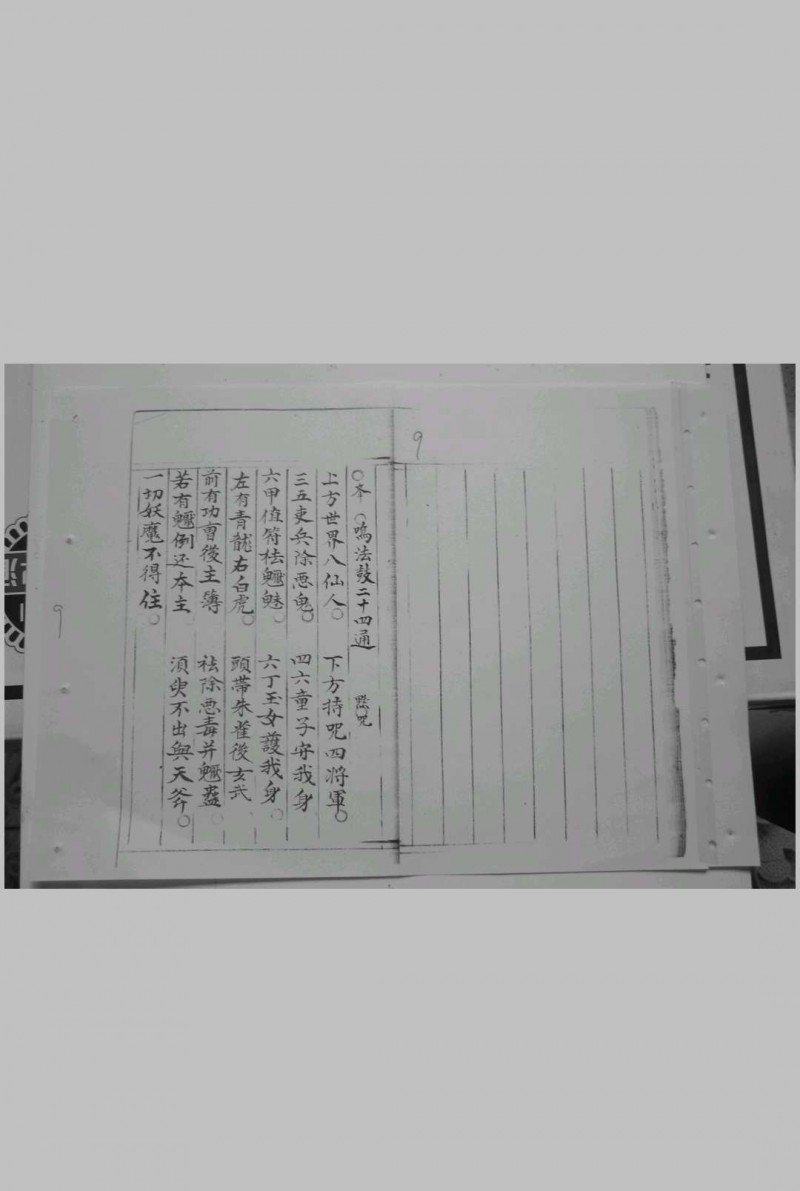 ○本 ○鳴法鼓二十四通 ○咒
上方世界八仙人○ 下方持呪四將軍○
三五吏兵除悪鬼○ 四六童子守我身
六甲值符祛魍魅○ 六丁玉女護我身○
左有青龍右白虎○ 頭帶朱雀後玄武
前有功曹後主簿 祛除悪毒并魍蠱○
若有魍例还本主 須臾不出與天斧○
一切妖魔不得住○
9
9